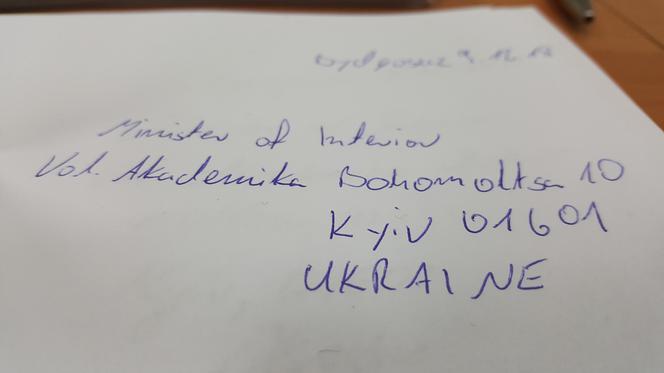 Bydgoszcz 9.12.17
Minister of Interior
Vol. Akademika Bohomoltsa 10
Kyiv 01601
UKRAINE